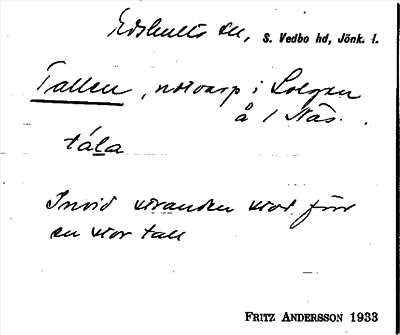 Edshults sn, S. Vedbo hd, Jönk. l.
Tallen, notvarp i Solgen
å 1 Näs.
tála
Invid stranden stod förr
en stor tall
FRITZ ANDERSSON 1933